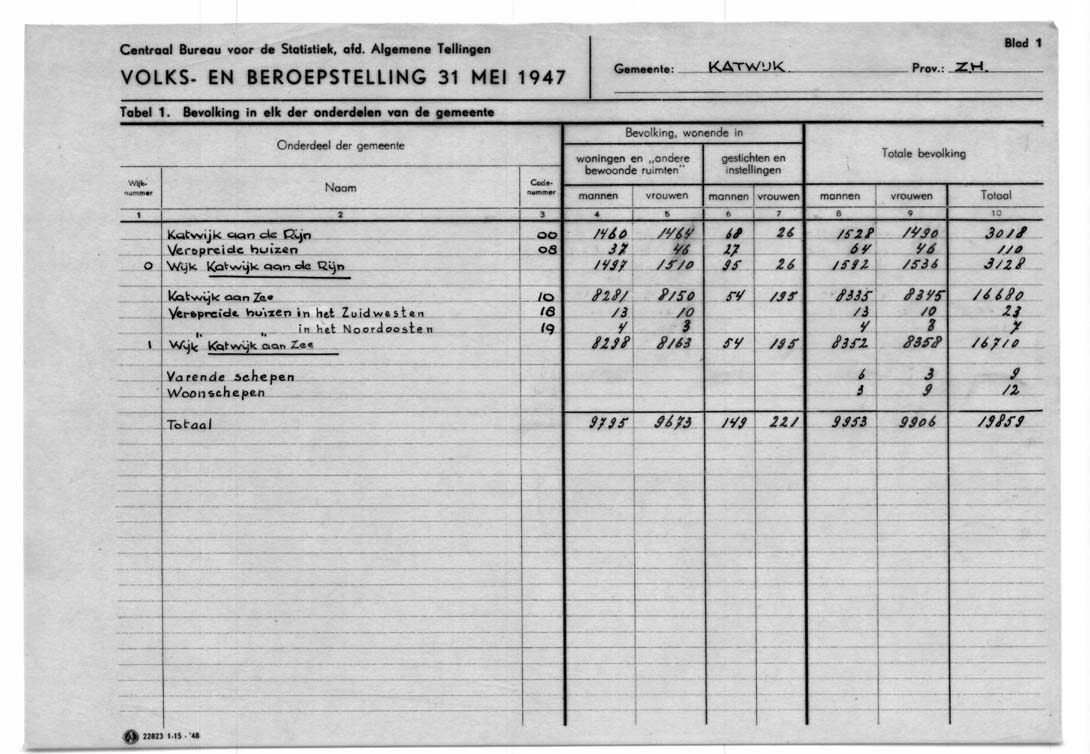 Centraal Bureau voor de Statistiek, afd. Algemene Tellingen
VOLKS- EN BEROEPSTELLING 31 MEI 1947
Gemeente: KATWIJK
Prov.: ZH.
Blad 1
Tabel 1. Bevolking in elk der onderdelen van de gemeente
Onderdeel der gemeente
Bevolking, wonende in
Totale bevolking
woningen en „andere bewoonde ruimten"
gestichten en instellingen
Wijk-nummer Naam Code-nummer mannen vrouwen mannen vrouwen mannen vrouwen Totaal
1 2 3 4 5 6 7 8 9 10
Katwijk aan de Rijn 00 1460 1464 68 26 1528 1490 3018
Verspreide huizen 08 37 46 27 64 46 110
0 Wijk Katwijk aan de Rijn 1497 1510 95 26 1592 1536 3128
Katwijk aan Zee 10 8281 8150 54 195 8335 8345 16680
Verspreide huizen in het Zuidwesten 18 13 10 13 10 23
" " in het Noordoosten 19 4 3 4 3 7
1 Wijk Katwijk aan Zee 8298 8163 54 195 8352 8358 16710
Varende schepen 6 3 9
Woonschepen 3 9 12
Totaal 9795 9673 149 221 9953 9906 19859
22823 1-15-'48